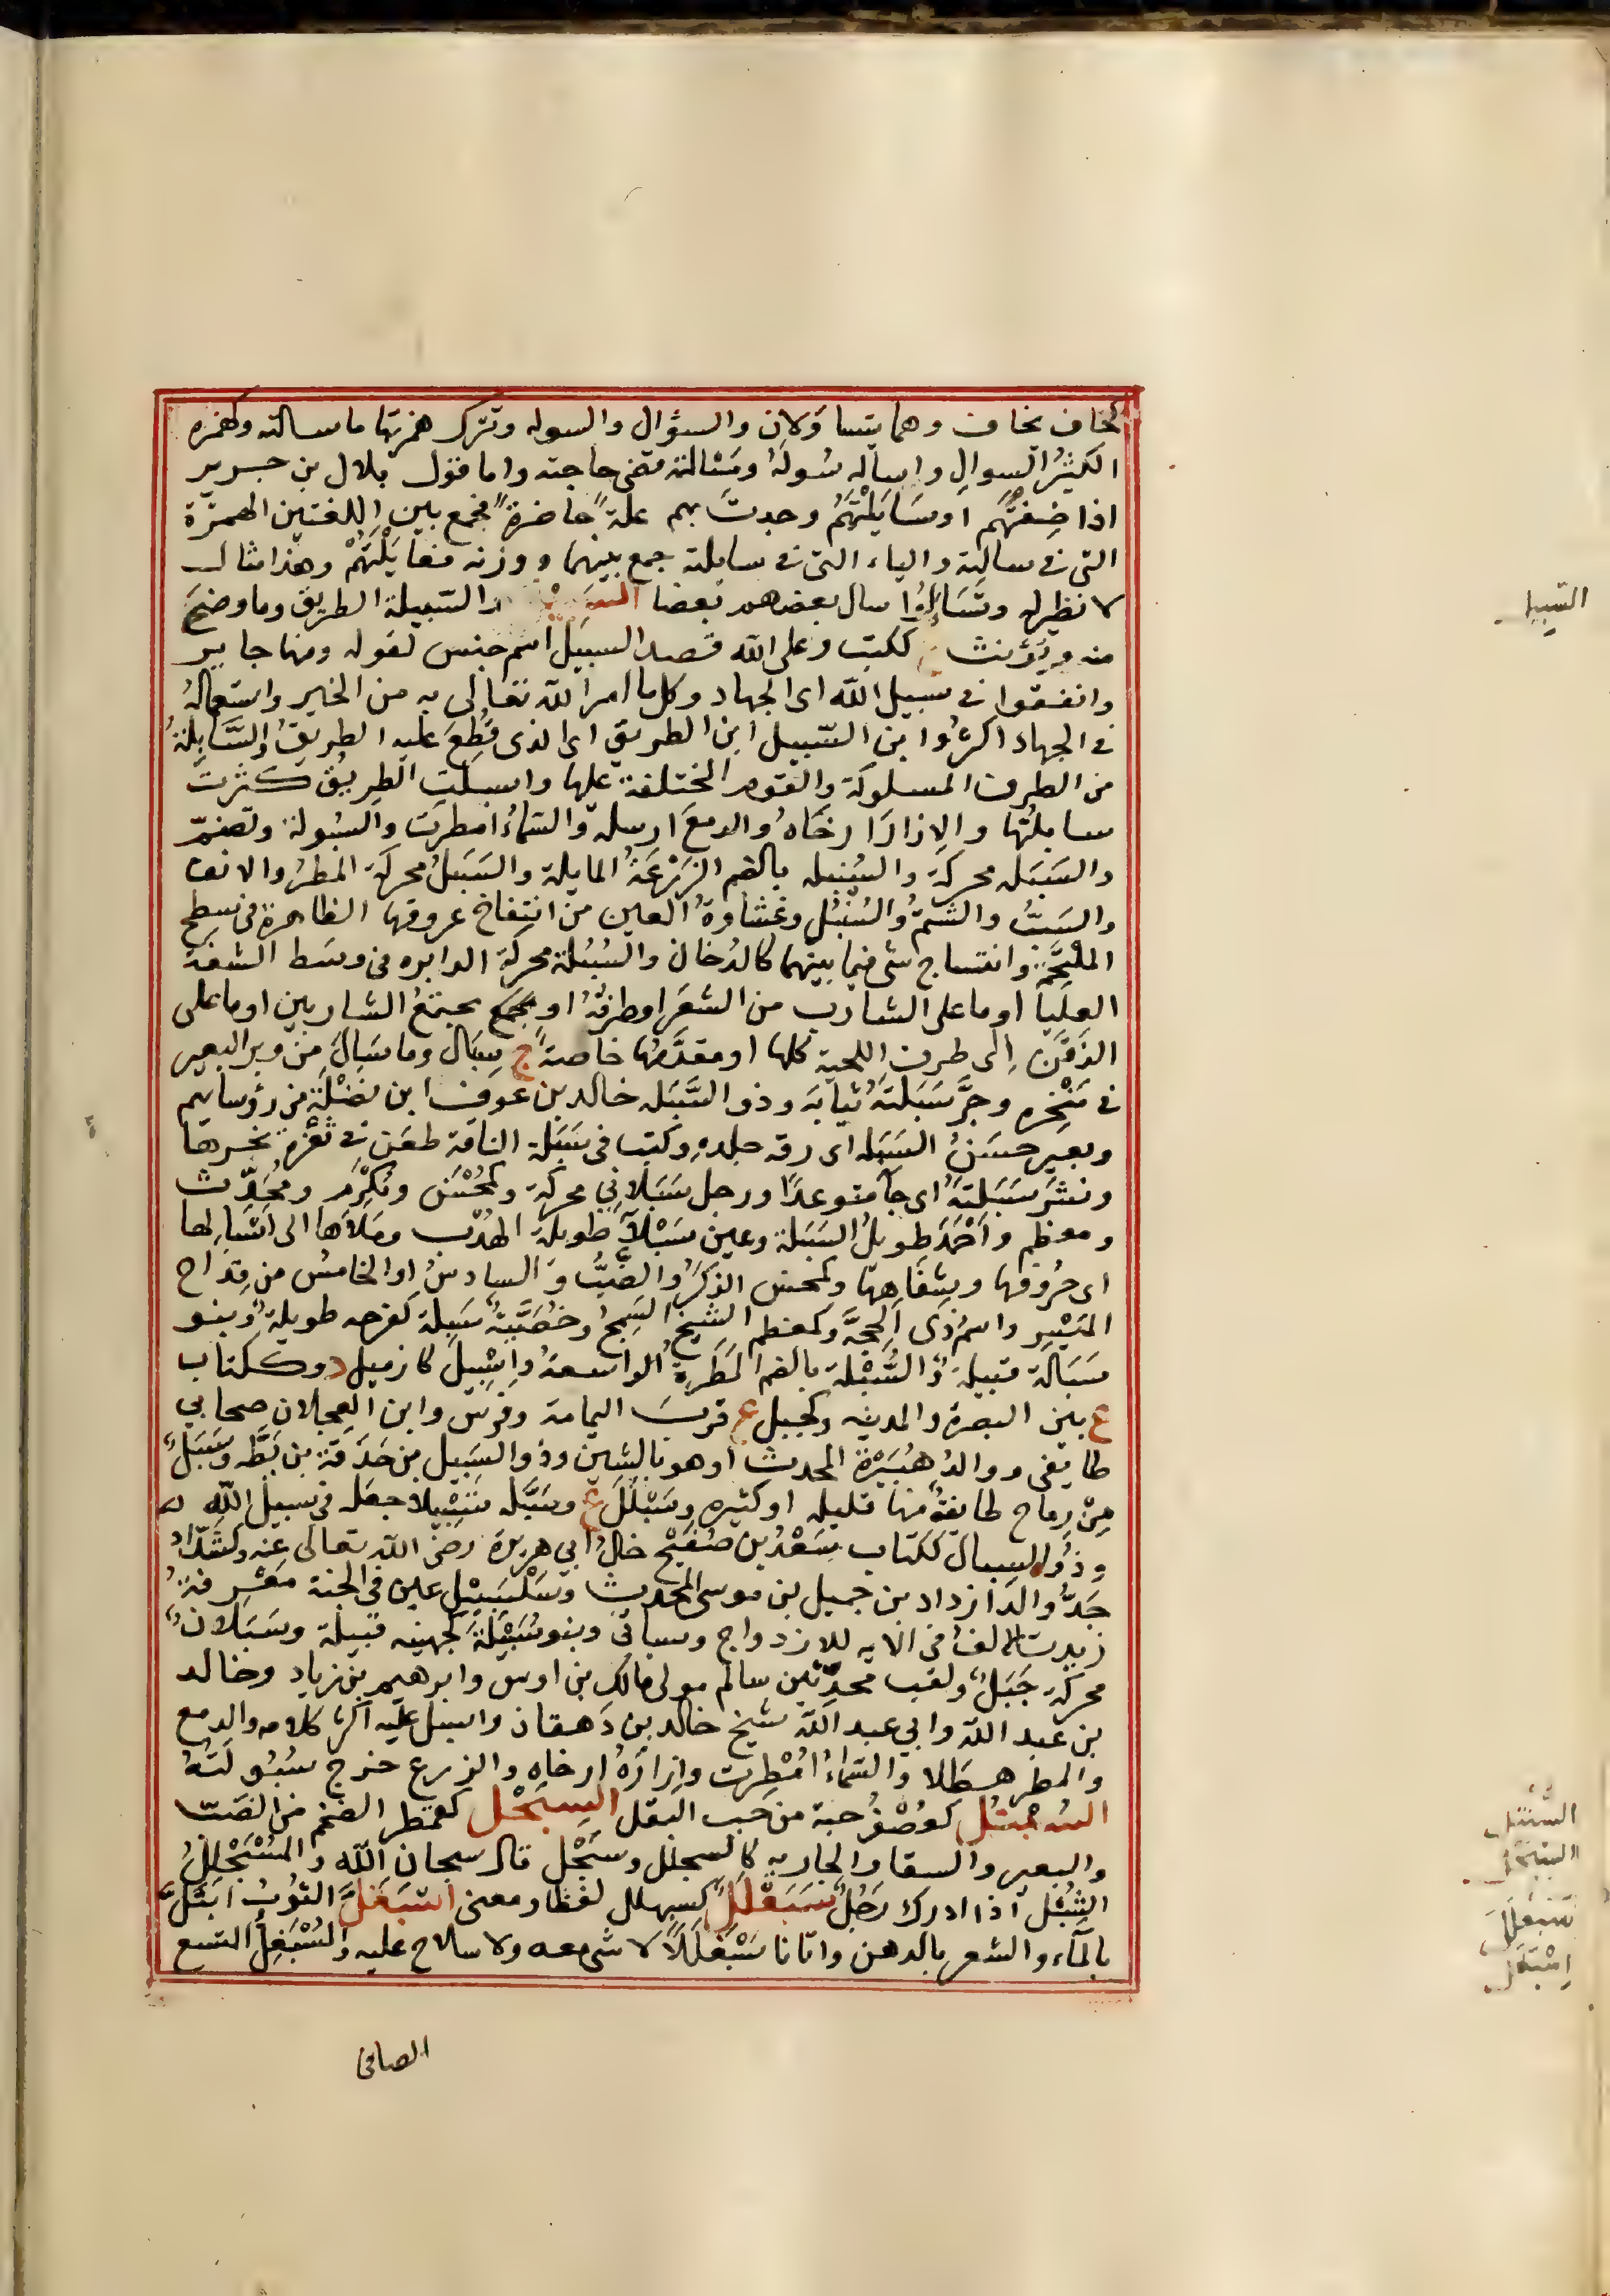 كخاف يخاف وهما يتساوَلان والسؤال والسوله وتترك همزتها ما سالته وكهمزه
الكثيرُ السوالِ واساله سُولَهُ ومَسْالته قضى حاجته واما قول بلال بن جرير
اذا ضِفْتَهُم اوسَايَلْتَهُم وجدتَ بهم علةً حاضرةً فجمع بين اللغتين الهمزة
التى فى سالته والياء التى فى سايلته جمع بينهما ووزنه فعايَلْتَهُمْ وهذا مثال
لا نظير له وتَسَالوُا سال بعضهم بعضا السَبِيْل والسَّبيلة الطريق وما وضحَ
منه ويُؤنث ج ككتب وعلى الله قصد السبيل اسم جنس لقوله ومنها جاير
وانفقوا فى سبيل الله اى الجهاد وكل ما امر الله تعالى به من الخير واستعمالهُ
فى الجهاد اكثرُ وابن السَّبيل ابن الطريق اى الذى قُطِعَ عليه الطريقُ والسَّابِلةُ
من الطرق المسلوكة والقوم المختلفة عليها واسبلتِ الطريقُ كثرت
سابِلتُها والازارَ ارخاه والدمعَ ارسله والسَّماءُ امطرت والسَبُولة وتضمّ
والسَبَله محركةً والسُنبله بالضم الزَرْعَةُ المايلة والسَبَلُ محركة المطرُ والانف
والسَبُّ والشتمُ والسُنْبُل وغشاوةُ العين من انتفاخ عروقها الظاهرة فى سطح
الملتحَمة وانتساج شى فيما بينهما كالدُخان والسَبَلة محركة الدايره فى وسَط الشفة
العليا او ما على الشارب من الشعَر او طرفُهُ او مجمع مجتمعُ الشاربين او ما على
الذَقَنِ الى طرف اللحية كلها او مقدَّمُها خاصةً ج سِبَال وما سَالَ من وبر البعير
فى مَنْخِره وجَرَّ سَبَلَتَهُ ثيابَه وذو السَّبَله خالد بن عوف ابن نَضْلَة من رؤسايهم
وبعير حسَنُ السَبَله اى رقه جلدهِ وكتب فى سَبَلة الناقة طعَن فى ثُغرة نحرها
ونشَرَ سَبَلتهُ اى جآ متوعدًا ورجل سَبَلانِي محركة وكمُحْسَن ومُكْرَم ومُحَدِّث
ومعظم واَحْمَدَ طويلُ السَبَلة وعين سَبْلآءُ طويلة الهُدْب وملأها الى اسْبَالِها
اى حُروفها وشِفَاهها وكمحسن الذكَرُ والضَّبُّ والسادسُ او الخامسُ من قِداح
المَيْسِر واسم ذى الحجةَ وكمعظم الشيخ السَمِجُ وخُصْيَةٌ سَبِلَة كفرحه طويلةٌ وبنو
سَبَالَة قبيلةٌ والسُّبْلة بالضم المَطَرة الواسعهُ واِسْبِيلَ كازميل د وككتاب
ع بين البصرة والمدينه وكجبل ع قربَ اليمامة وفرس وابن العجلان صحابي
طايفى ووالدُ هُبَيْرَة المحدث او هو بالشين وذو السَبَيل بن حَدَقة بن بَطَّه وسَبَلٌ
مِنْ رماح طايفةٌ منها قليله او كثيره وسَبْلَلَ ع وسَبَّله تَسْبِيلا جعَله فى سبيل الله
وذُو السبال ككتاب سَعْدُ بن صُفَيْح خالُ ابي هريرة رضى الله تعالى عنه وكشَدَّادُ
جَدُّ والد ازداد بن جميل بن موسى المحدث وسَلْسَبِيْل عين فى الجنة مَعْرِفةٌ
زيدت الالف فى الايه للازدواج وسياتى وبنو سُبَيْلَة كجهينه قبيلة وسَبَلانٌ
محركة جَبَلٌ ولقب محدِّثين سالم مولى مالك بن اوس وابرهيم بن زياد وخالد
بن عبد الله وابي عبد الله شيخ خالد بن دَهقان واسبل عليه اكثر كلامه والدمع
والمطر هَطَلا والسَّماءُ امْطِرت واِزَارَهُ ارخاه والزرع خرج سُبُولَتُهُ
السُبْعْتُل كعُصْفُر حبة من حب البقل السِبَحْل كقمطر الضخم من الضَبّ
والبعير والسقا والجاريه كالسبحلل وسَبْحَل قال سبحان الله والمُسْبَحْلِلُ
الشِبْل اذا ادرك رَجُلٌ سَبَعْلَل كسبهلل لفظا ومعنى اسْبَغَلَّ الثوبُ ابْتَلَّ
بالمآء والشعر بالدهن واتانا سَبْغَلَلًا لا شى معه ولا سلاح عليه والمُسْبَغِلُّ المتسع
الصافى
السَّبِيل
سَبَعْلَل
اِسْبَغَلَّ